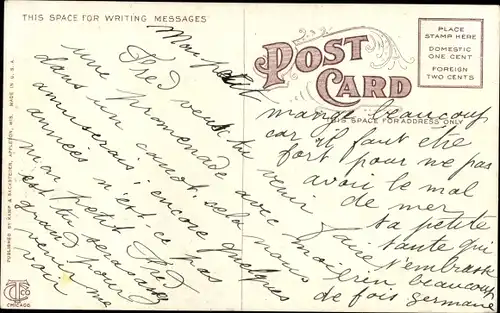 THIS SPACE FOR WRITING MESSAGES
Mon petit
Fred veux tu venir
une promenade avec moi
dans un canot, cela nous
amuserais; encore quelques
années n'est-ce pas
mon petit Fred
est tu seras assez
grand pour
venir me
voir
POST CARD
THIS SPACE FOR ADDRESS ONLY
PLACE
STAMP HERE
DOMESTIC
ONE CENT
FOREIGN
TWO CENTS
mange beaucoup
car il faut être
fort pour ne pas
avoir le mal
de mer
ta petite
tante qui
t'embrasse
bien beaucoup
de fois Germaine
PUBLISHED BY KAMP & BACKSTEIDER, APPLETON, WIS. MADE IN U.S.A.
CTCO
CHICAGO